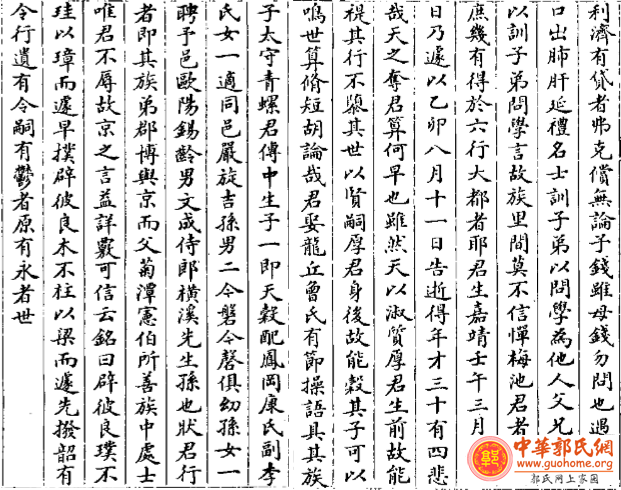 利濟有貸者弗克償無論子錢雖母錢勿問也遇
口出肺肝延禮名士訓子弟以問學為他人父兄
以訓子弟問學言故族里間莫不信憚梅池君者
庶幾有得於六行大都者耶君生嘉靖壬午三月
日乃遽以乙卯八月十一日告逝得年才三十有四悲
哉天之奪君算何早也雖然天以淑質厚君生前故能
禔其行不隳其世以賢嗣厚君身後故能穀其子可以
鳴世算脩短胡論哉君娶龍丘曾氏有節操語具其族
子太守青螺君傳中生子一即天穀配鳳岡康氏副李
氏女一適同邑嚴旋吉孫男二令磐令罄俱幼孫女一
聘予邑歐陽錫齡男文成侍郎橫溪先生孫也狀君行
者即其族弟郡博輿京而父菊潭憲伯所善族中處士
唯君不辱故京之言益詳覈可信云銘曰辟彼良璞不
珪以璋而遽早撲辟彼良木不柱以梁而遽先撥韶有
令行遺有令嗣有鬱者原有永者世
中華郭氏網
www.guohome.org
郭氏網上家園